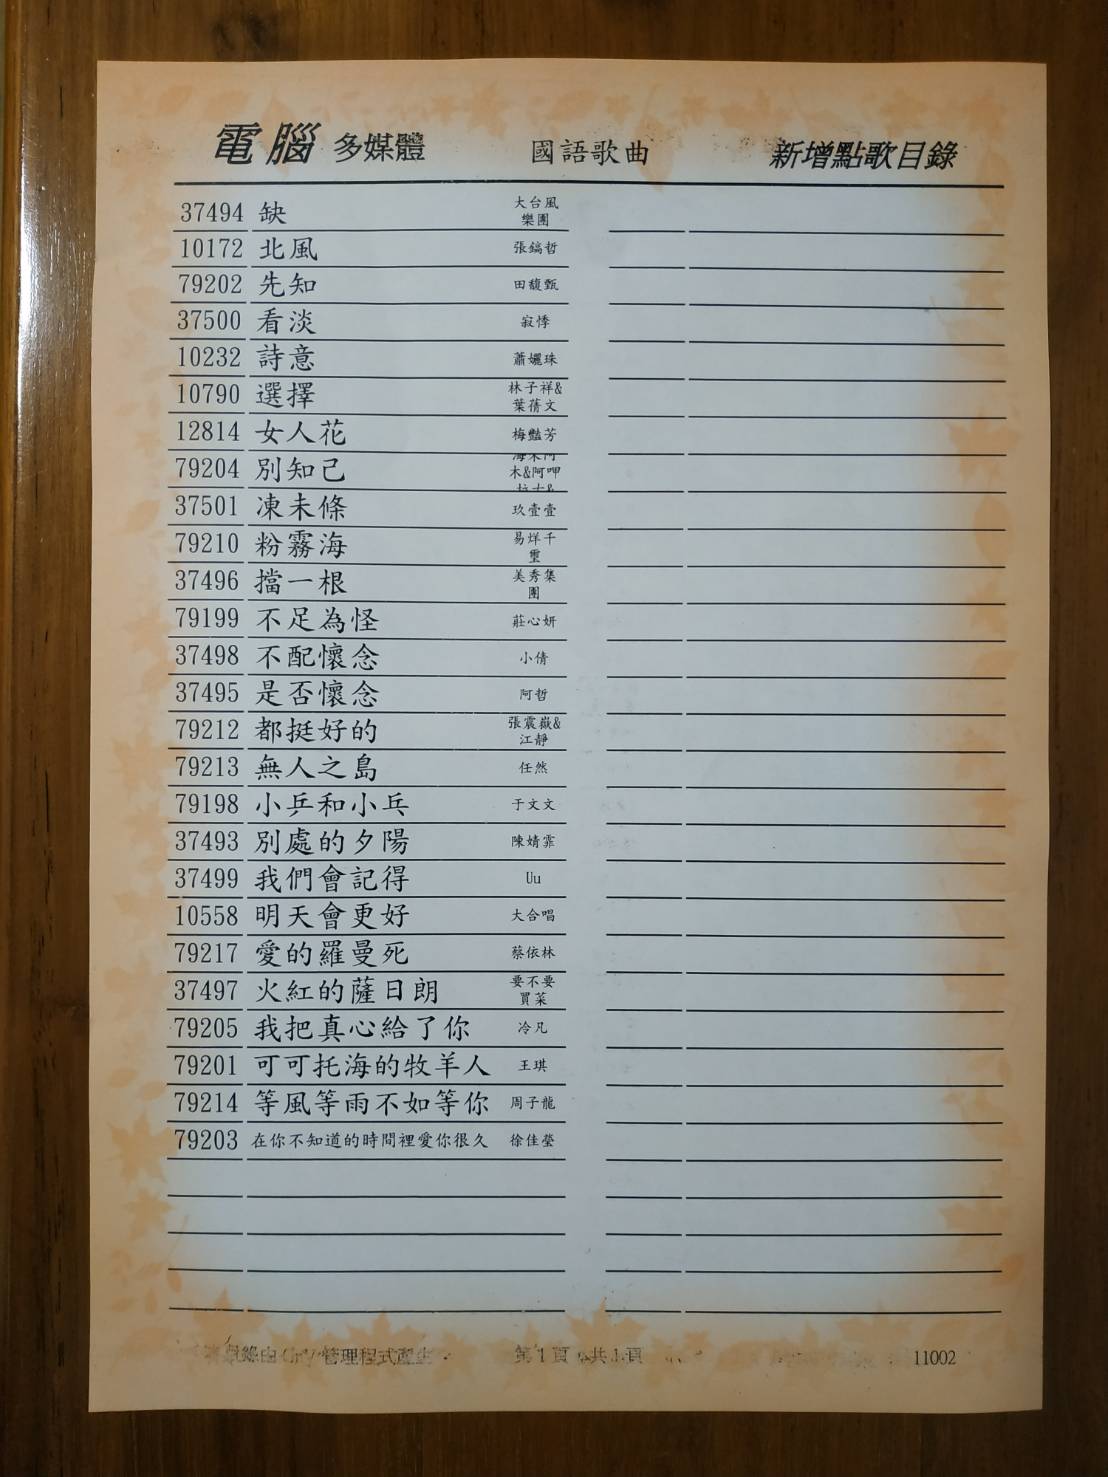 電腦 多媒體 國語歌曲 新增點歌目錄
37494 缺 大台風樂團
10172 北風 張鎬哲
79202 先知 田馥甄
37500 看淡 寂悸
10232 詩意 蕭孋珠
10790 選擇 林子祥&葉蒨文
12814 女人花 梅豔芳
79204 別知己 木&阿呷
37501 凍未條 玖壹壹
79210 粉霧海 易烊千璽
37496 擋一根 美秀集團
79199 不足為怪 莊心妍
37498 不配懷念 小倩
37495 是否懷念 阿哲
79212 都挺好的 張震嶽&江靜
79213 無人之島 任然
79198 小乒和小乓 于文文
37493 別處的夕陽 陳婧霏
37499 我們會記得 Uu
10558 明天會更好 大合唱
79217 愛的羅曼死 蔡依林
37497 火紅的薩日朗 要不要買菜
79205 我把真心給了你 冷凡
79201 可可托海的牧羊人 王琪
79214 等風等雨不如等你 周子龍
79203 在你不知道的時間裡愛你很久 徐佳瑩
管理程式產生 第1頁 共1頁 11002